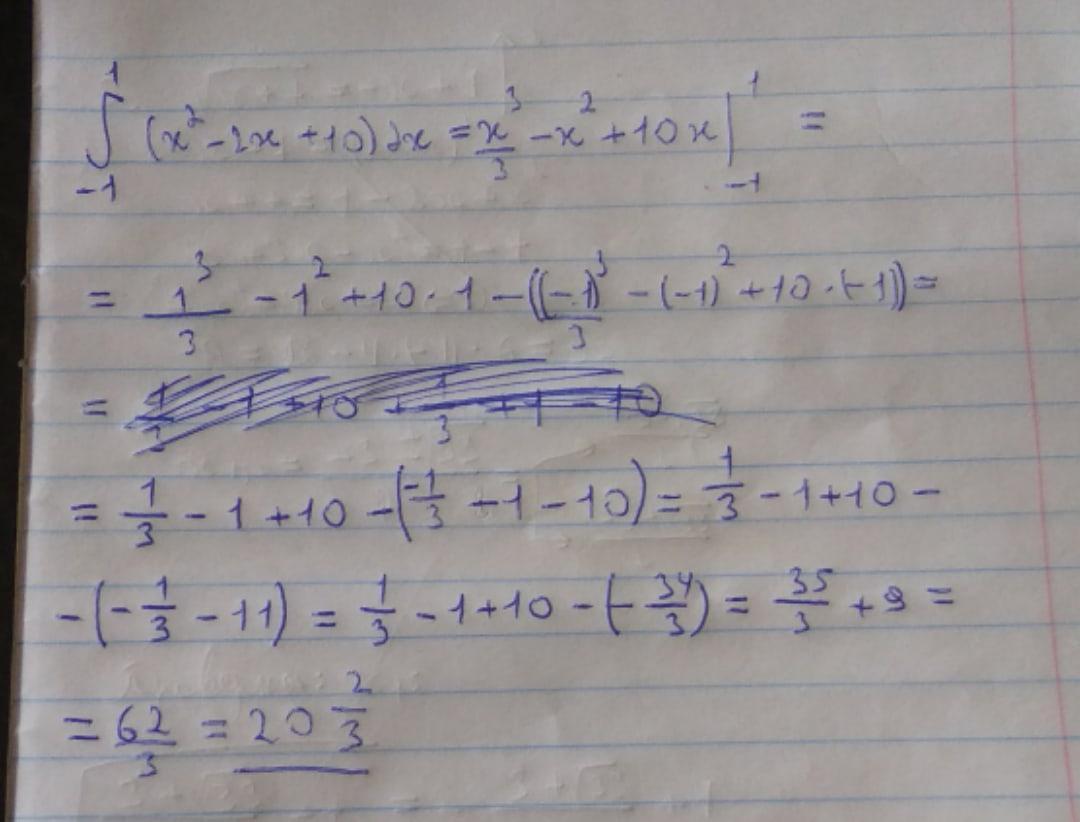 ∫₋₁¹ (x² - 2x + 10) dx = x³/3 - x² + 10x |₋₁¹ =
= 1³/3 - 1² + 10 · 1 - ((-1)³/3 - (-1)² + 10 · (-1)) =
=
= 1/3 - 1 + 10 - (-1/3 - 1 - 10) = 1/3 - 1 + 10 -
- (- 1/3 - 11) = 1/3 - 1 + 10 - (- 34/3) = 35/3 + 9 =
= 62/3 = 20 2/3